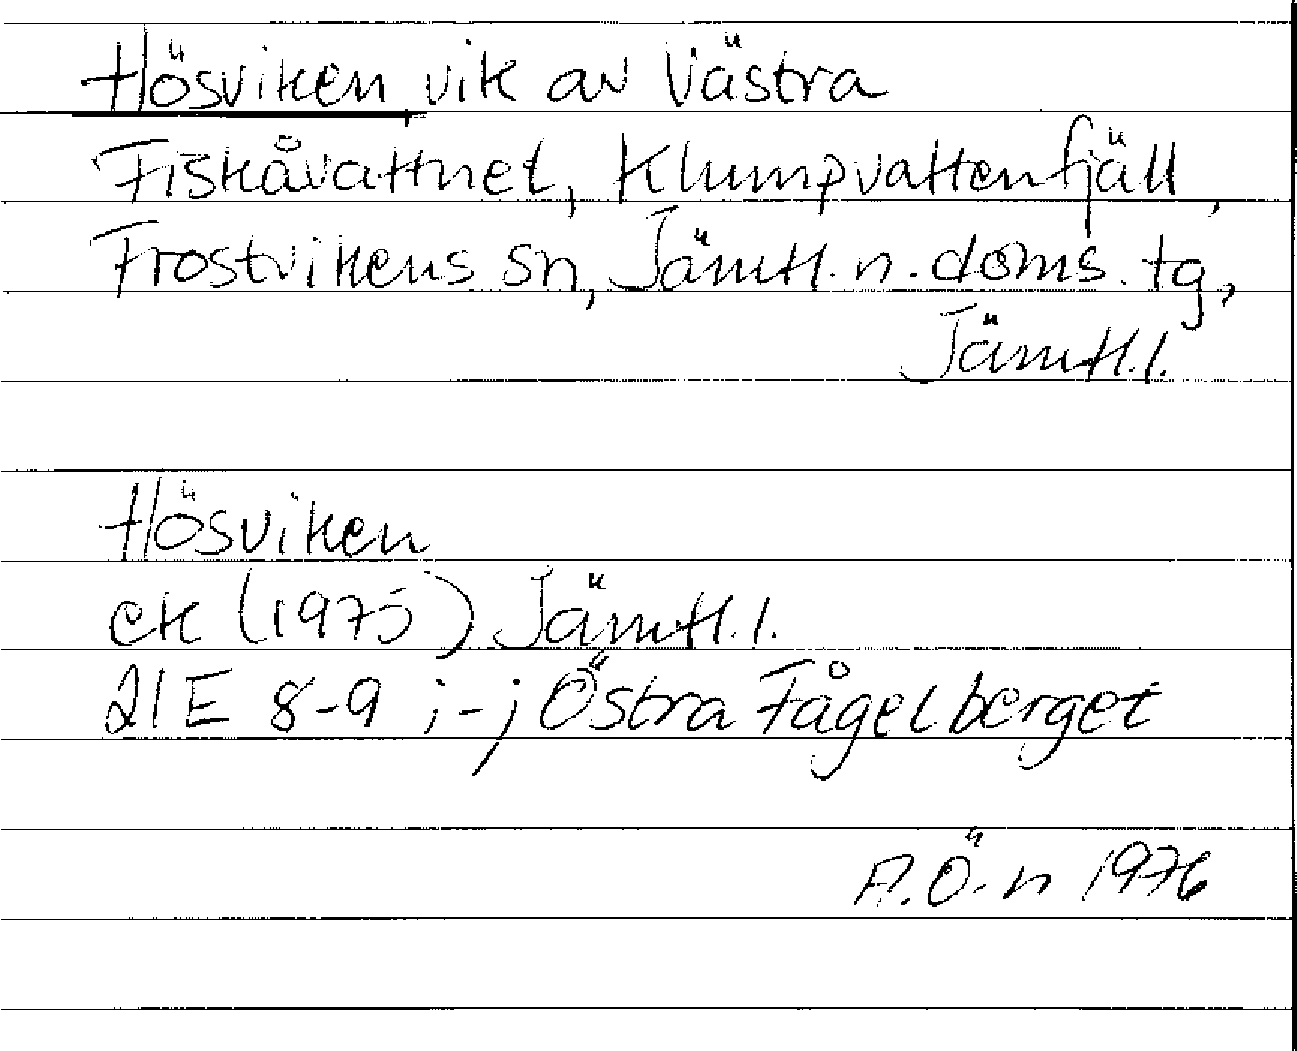 Hösviken, vik av Västra
Fiskåvattnet, Klumpvattenfjäll,
Frostvikens sn, Jämtl. n. doms. tg,
Jämtl. l.
Hösviken
ek (1975) Jämtl. l.
21E 8-9 i-j Östra Fågelberget
A. Ö-n 1976